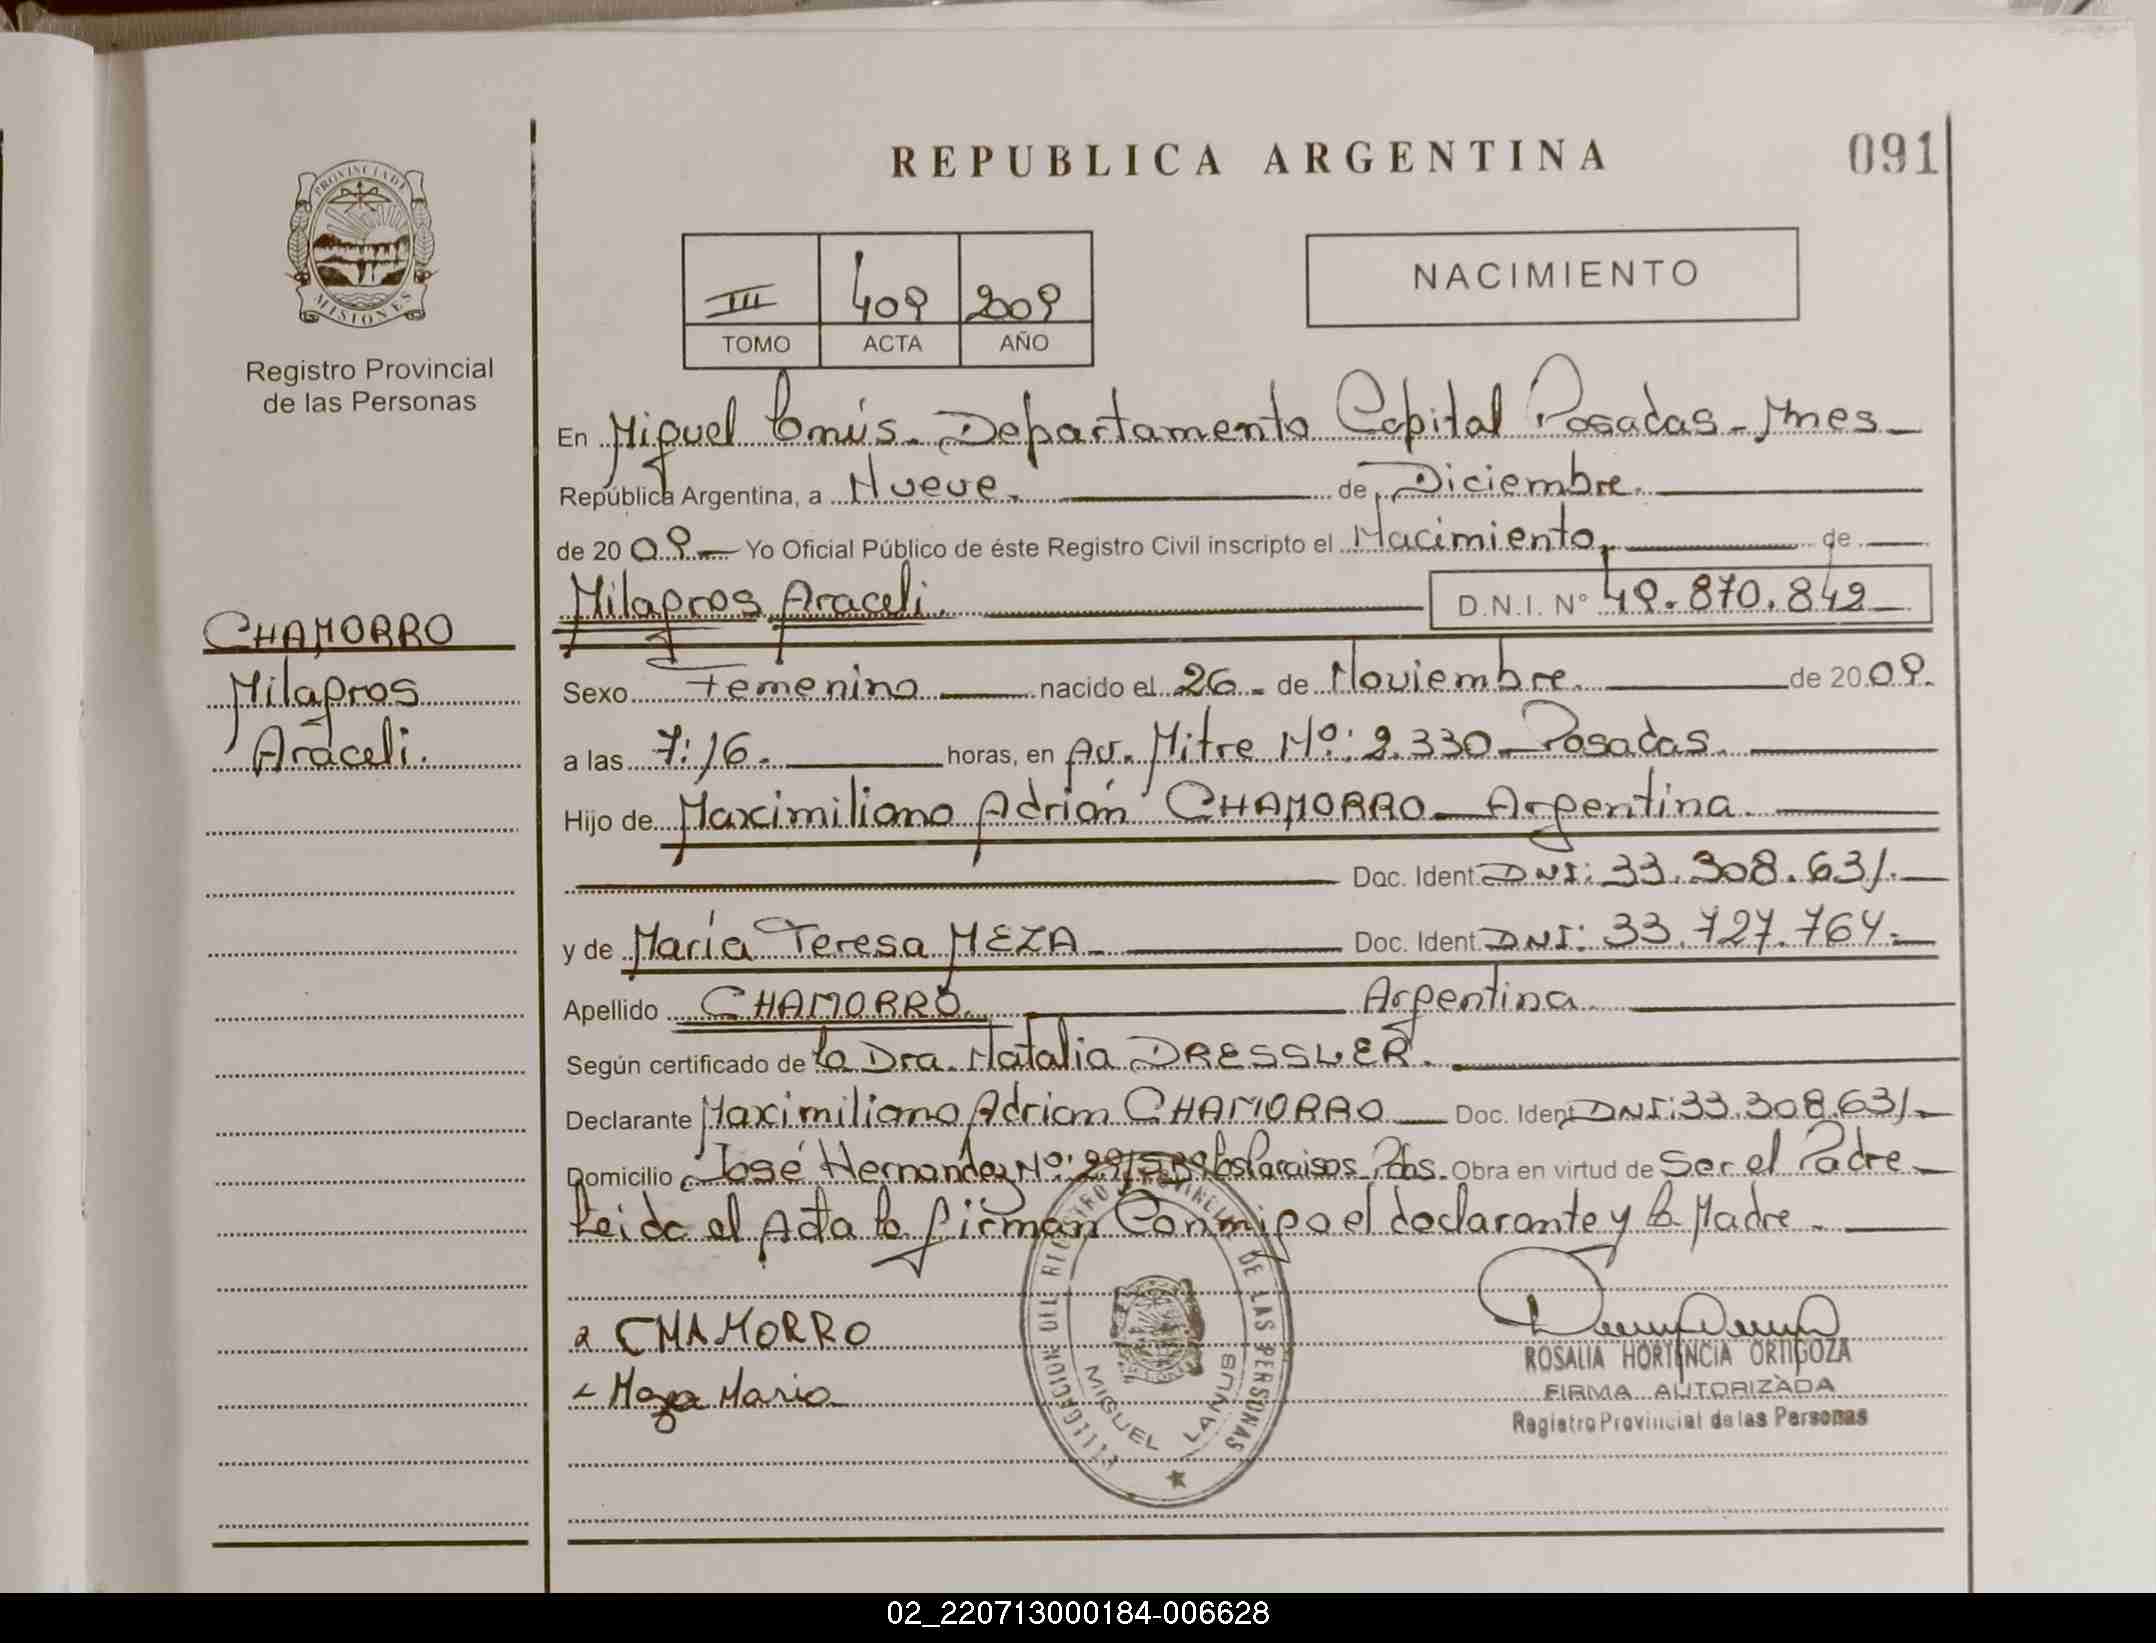 REPUBLICA ARGENTINA
091
PROVINCIA DE
MISIONES
Registro Provincial
de las Personas
NACIMIENTO
III 409 2009
TOMO ACTA AÑO
En Miguel Lanús. Departamento Capital Posadas - Mnes
República Argentina, a Nueve. de Diciembre.
de 20 09 Yo Oficial Público de éste Registro Civil inscripto el Nacimiento, de
Milagros Araceli. D.N.I. N° 49.870.842
CHAMORRO
Milagros
Araceli.
Sexo Femenino nacido el 26 - de Noviembre. de 20 09.
a las 7:16. horas, en Av. Mitre Nº: 2.330 - Posadas.
Hijo de Maximiliano Adrián CHAMORRO - Argentina.
Doc. Ident. DNI: 33.308.631.
y de María Teresa MEZA - Doc. Ident. DNI: 33.727.764.
Apellido CHAMORRO. Argentina.
Según certificado de la Dra. Natalia DRESSLER.
Declarante Maximiliano Adrian CHAMORRO Doc. Ident. DNI: 33.308.631
Domicilio José Hernandez Nº: los Paraisos Pdas. Obra en virtud de Ser el Padre
Leida el Acta la firman Conmigo el declarante y la Madre.
CHAMORRO
Meza Maria
DELEGACION DEL REGISTRO PROVINCIAL DE LAS PERSONAS
MIGUEL LANUS
ROSALIA HORTENCIA ORTIGOZA
FIRMA AUTORIZADA
Registro Provincial de las Personas
02_220713000184-006628